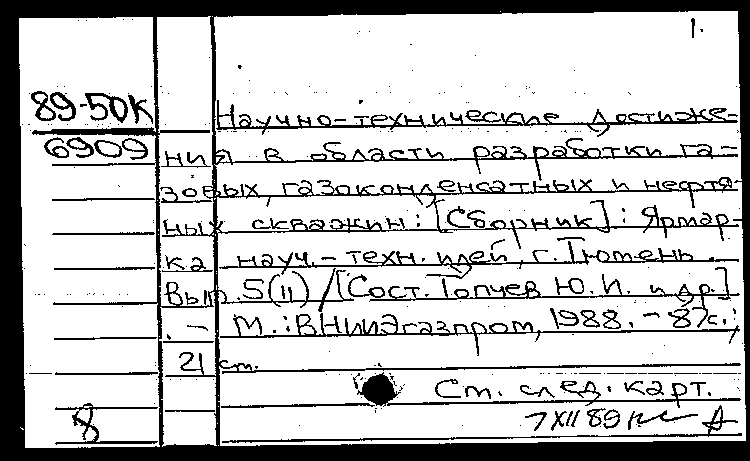 1.
89-50К
6909
Научно-технические достиже-
ния в области разработки га-
зовых, газоконденсатных и нефтя-
ных скважин: [Сборник]: Ярмар-
ка науч.-техн. идей, г. Тюмень.
Вып. 5(11) / [Сост. Топчев Ю.И. и др.]
. - М.: ВНИИЭгазпром, 1988. - 87с.;
21 см.
См. след. карт.
8
7 XII 89